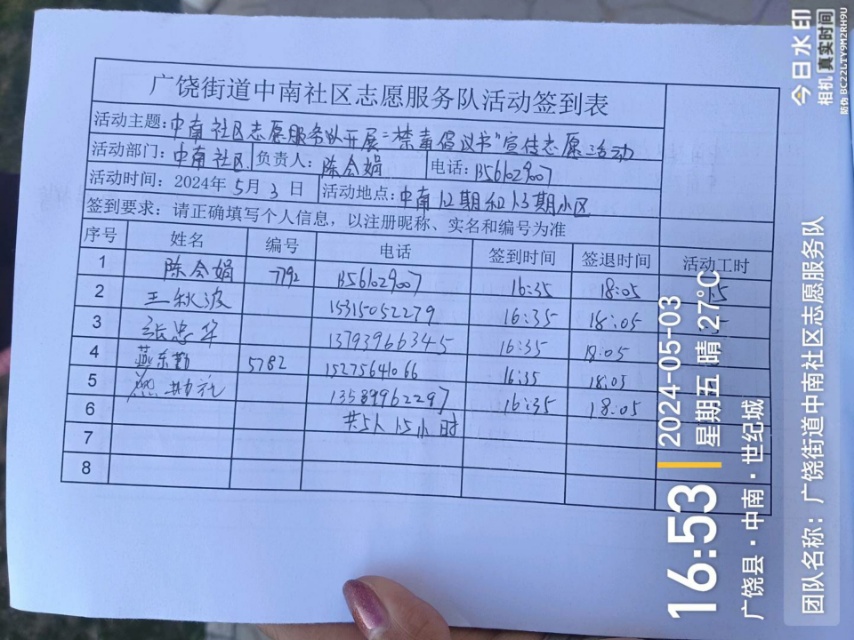 广饶街道中南社区志愿服务队活动签到表
活动主题:中南社区志愿服务队开展"禁毒倡议书"宣传志愿活动
活动部门:中南社区 负责人:陈会娟 电话:
活动时间:2024年5月3日 活动地点:中南12期和13期小区
签到要求:请正确填写个人信息,以注册昵称、实名和编号为准
序号 姓名 编号 电话 签到时间 签退时间 活动工时
1 陈会娟 7792 16:35 18:05
2 王秋波 15315052279 16:35 18:05
3 张忠华 13793966345 16:35 18:05
4 燕东勤 5782 15275641066 16:35 18:05
5 13589962297 16:35 18:05
6 共5人 1.5小时
7
8
16:53
2024-05-03
星期五 晴 27°C
广饶县·中南·世纪城
团队名称:广饶街道中南社区志愿服务队
今日水印
相机 真实时间
防伪 BC22LTY9M2RH9U